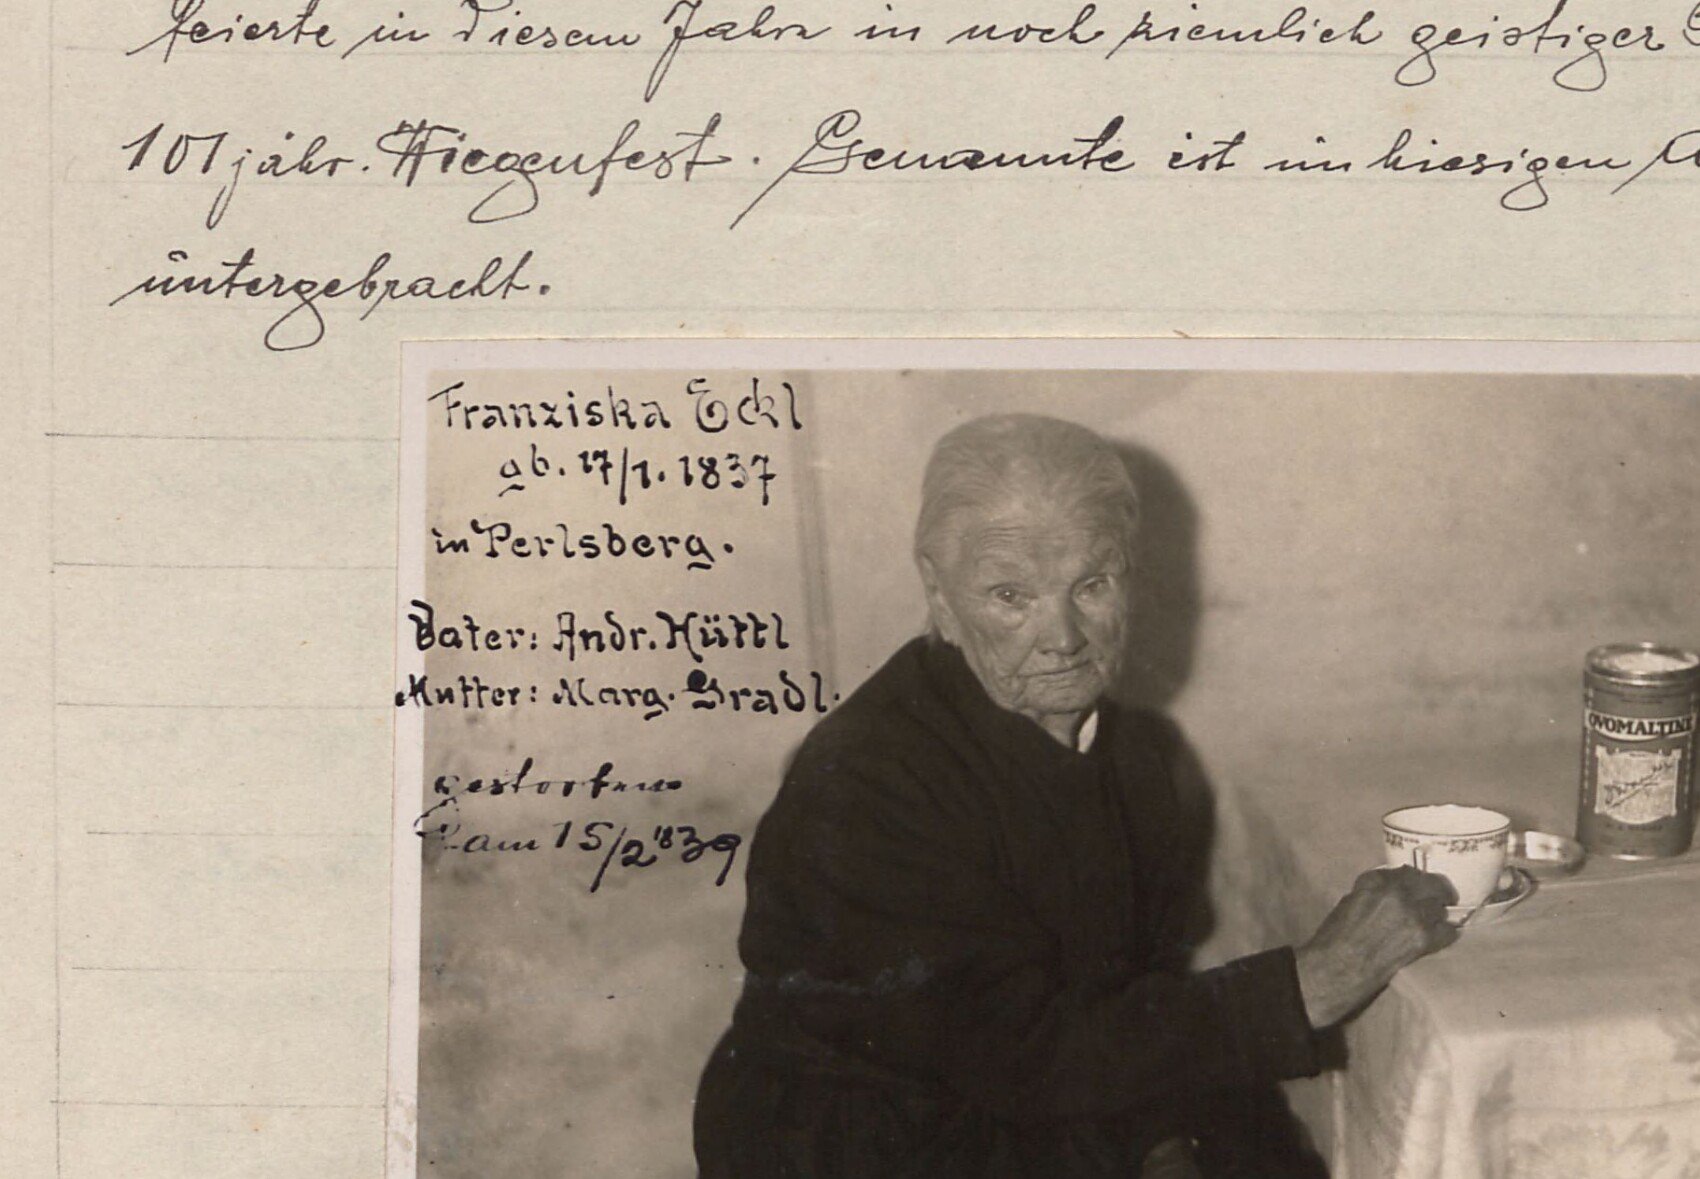 feierte in diesem Jahre in noch ziemlich geistiger
101 jähr. Wiegenfest. Genannte ist im hiesigen
untergebracht.
Franziska Eckl
gb. 17/1. 1837
in Perlsberg.
Vater: Andr. Hüttl
Mutter: Marg. Gradl.
gestorben
am 15/2
OVOMALTINE